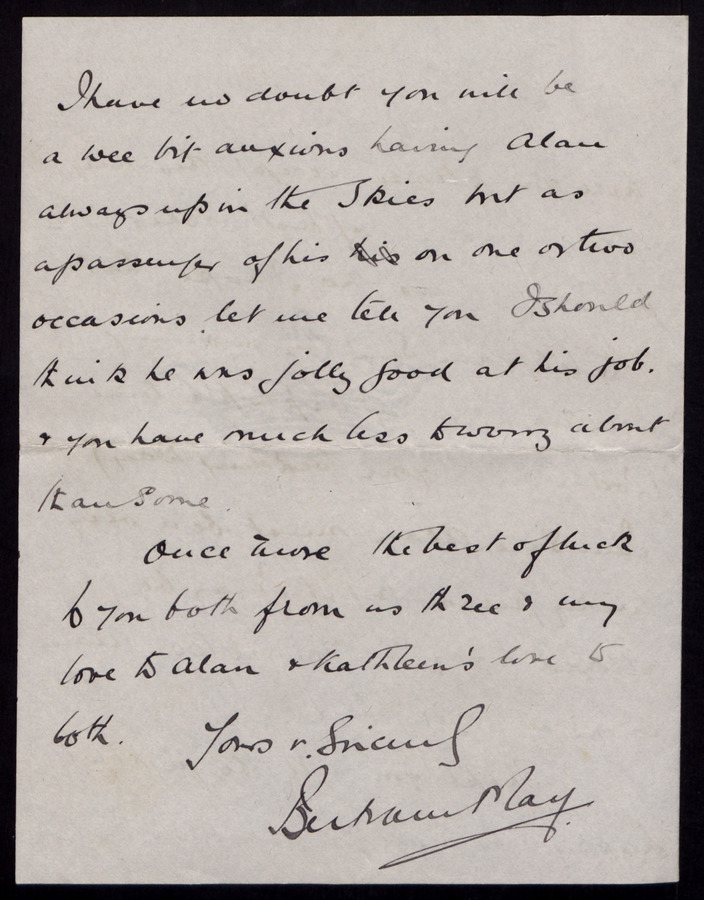 I have no doubt you will be
a wee bit anxious having Alan
always up in the Skies but as
a passenger of his his on one or two
occasions let me tell you I should
think he was jolly good at his job.
& you have much less to worry about
than some.
Once more the best of luck
to you both from us three & my
love to Alan & Kathleen's love to
both. Yours v. Sincerely
Bertram May